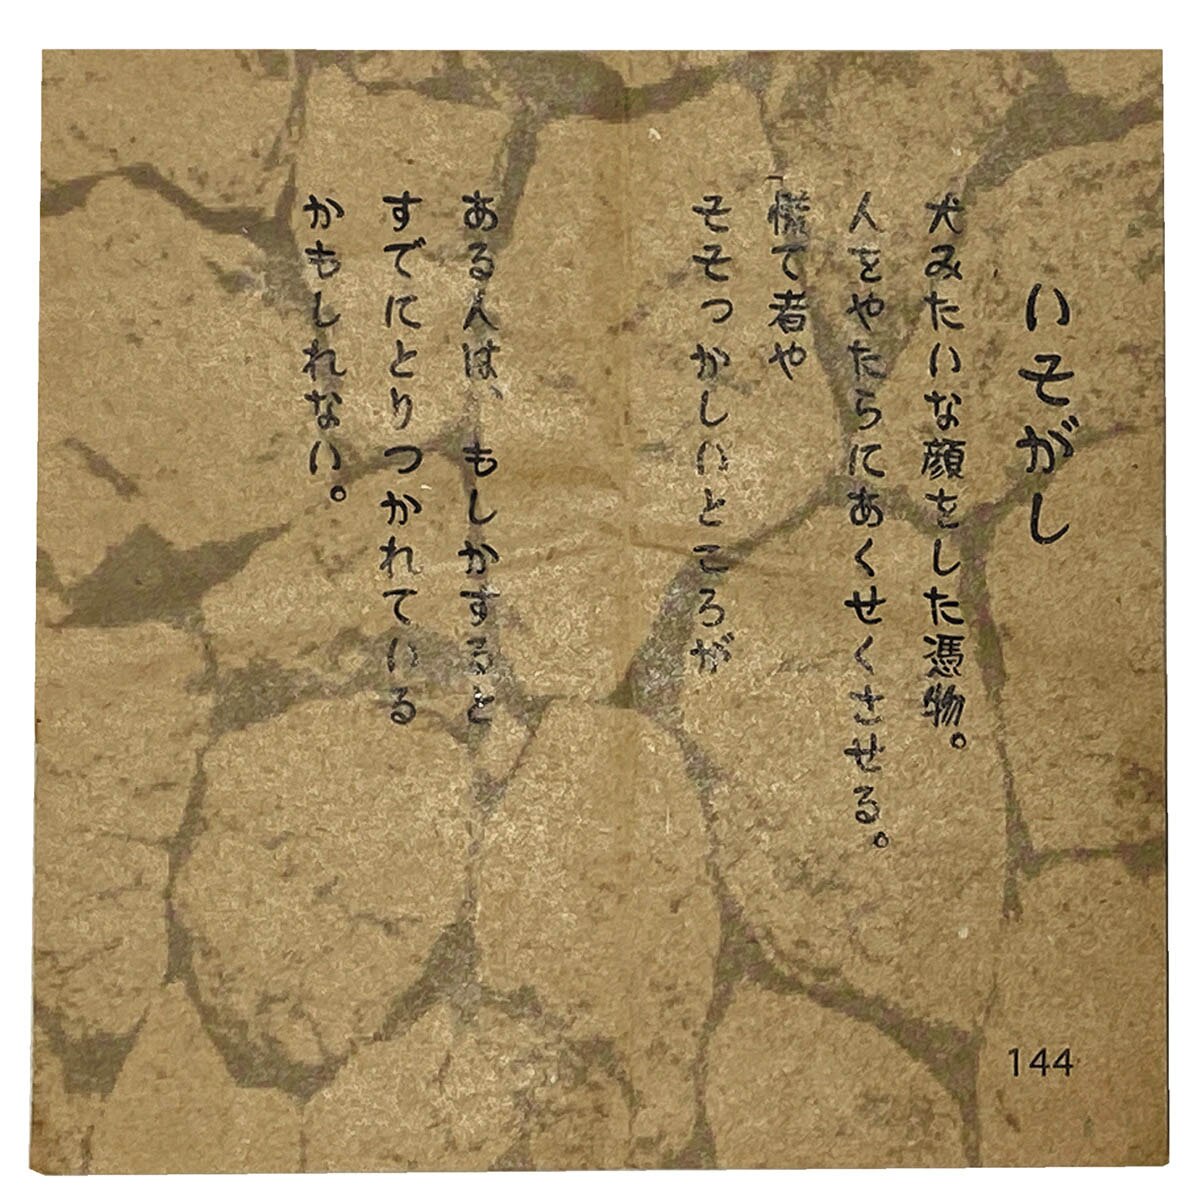 いそがし
犬みたいな顔をした憑物。
人をやたらにあくせくさせる。
慌て者や
そそっかしいところが
ある人は、もしかすると
すでにとりつかれている
かもしれない。
144